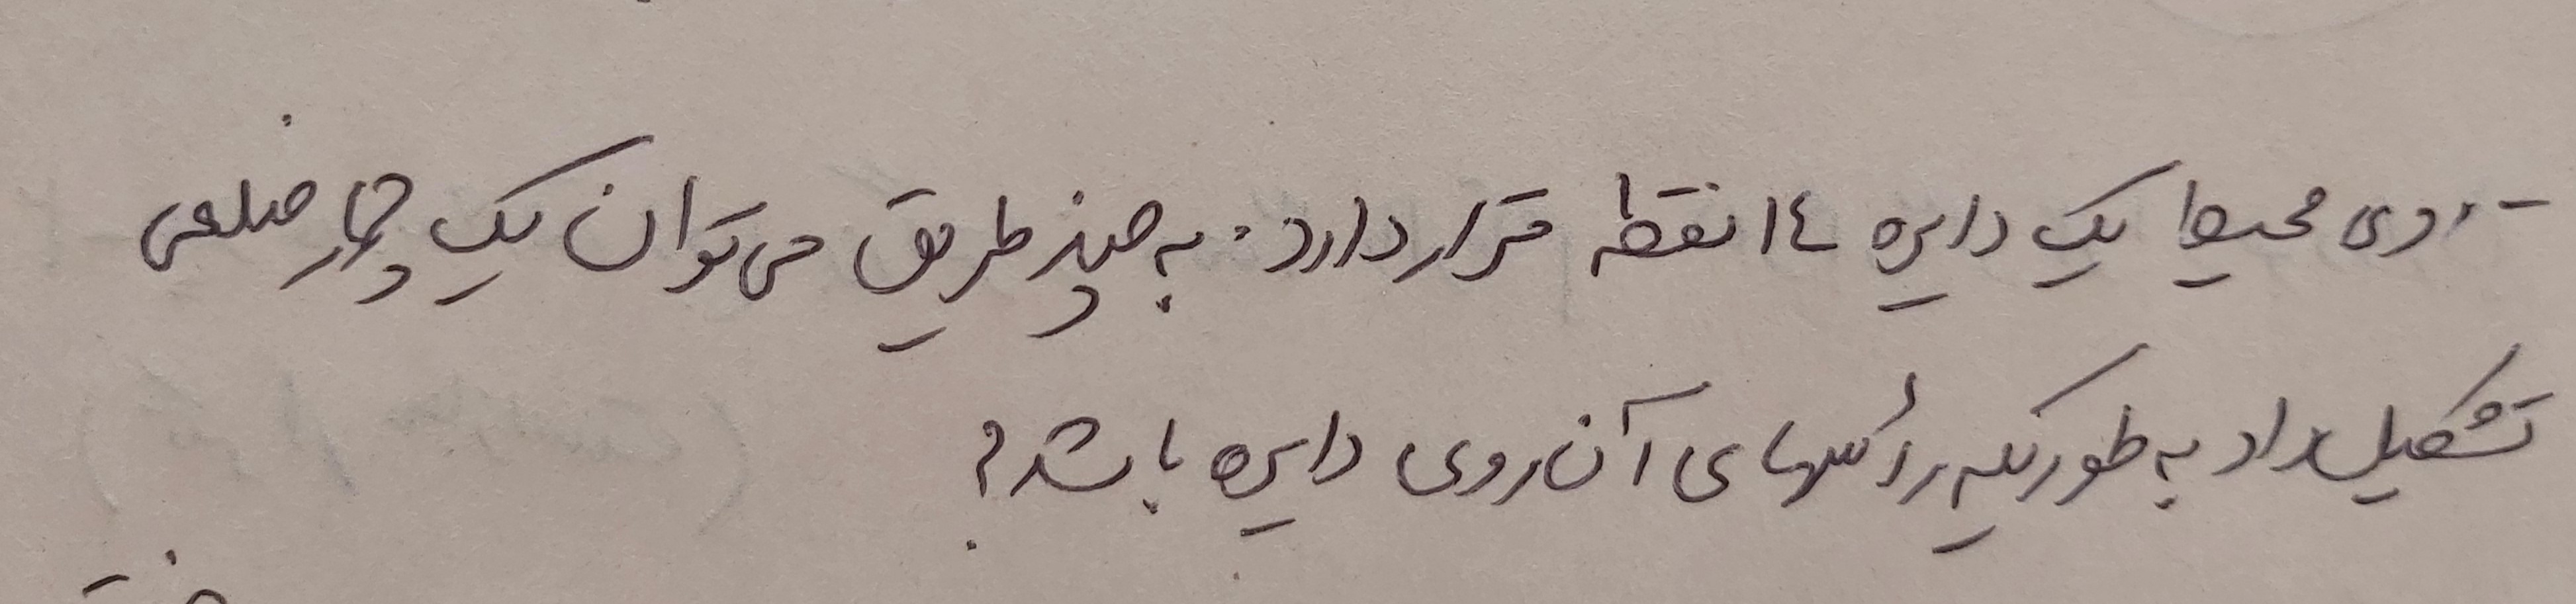 - روی محیط یک دایره ١٤ نقطه قرار دارد. به چند طریق می توان یک چهار ضلعی
تشکیل داد به طوریکه رأسهای آن روی دایره باشد؟